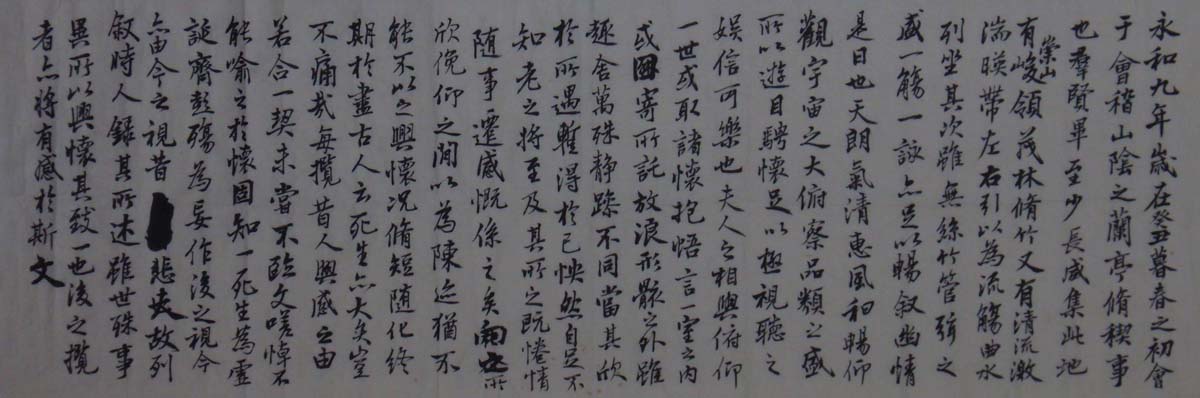 永和九年歲在癸丑暮春之初會
于會稽山陰之蘭亭脩稧事
也羣賢畢至少長咸集此地
有崇山峻領茂林脩竹又有清流激
湍暎帶左右引以為流觴曲水
列坐其次雖無絲竹管弦之
盛一觴一詠亦足以暢叙幽情
是日也天朗氣清惠風和暢仰
觀宇宙之大俯察品類之盛
所以遊目騁懷足以極視聽之
娛信可樂也夫人之相與俯仰
一世或取諸懷抱悟言一室之內
或因寄所託放浪形骸之外雖
趣舍萬殊静躁不同當其欣
於所遇暫得於己怏然自足不
知老之將至及其所之既惓情
随事遷感慨係之矣向之所
欣俛仰之間以為陳迹猶不
能不以之興懷況脩短随化終
期於盡古人云死生亦大矣豈
不痛哉每攬昔人興感之由
若合一契未嘗不臨文嗟悼不
能喻之於懷固知一死生為虛
誕齊彭殤為妄作後之視今
亦由今之視昔悲夫故列
叙時人錄其所述雖世殊事
異所以興懷其致一也後之攬
者亦將有感於斯文